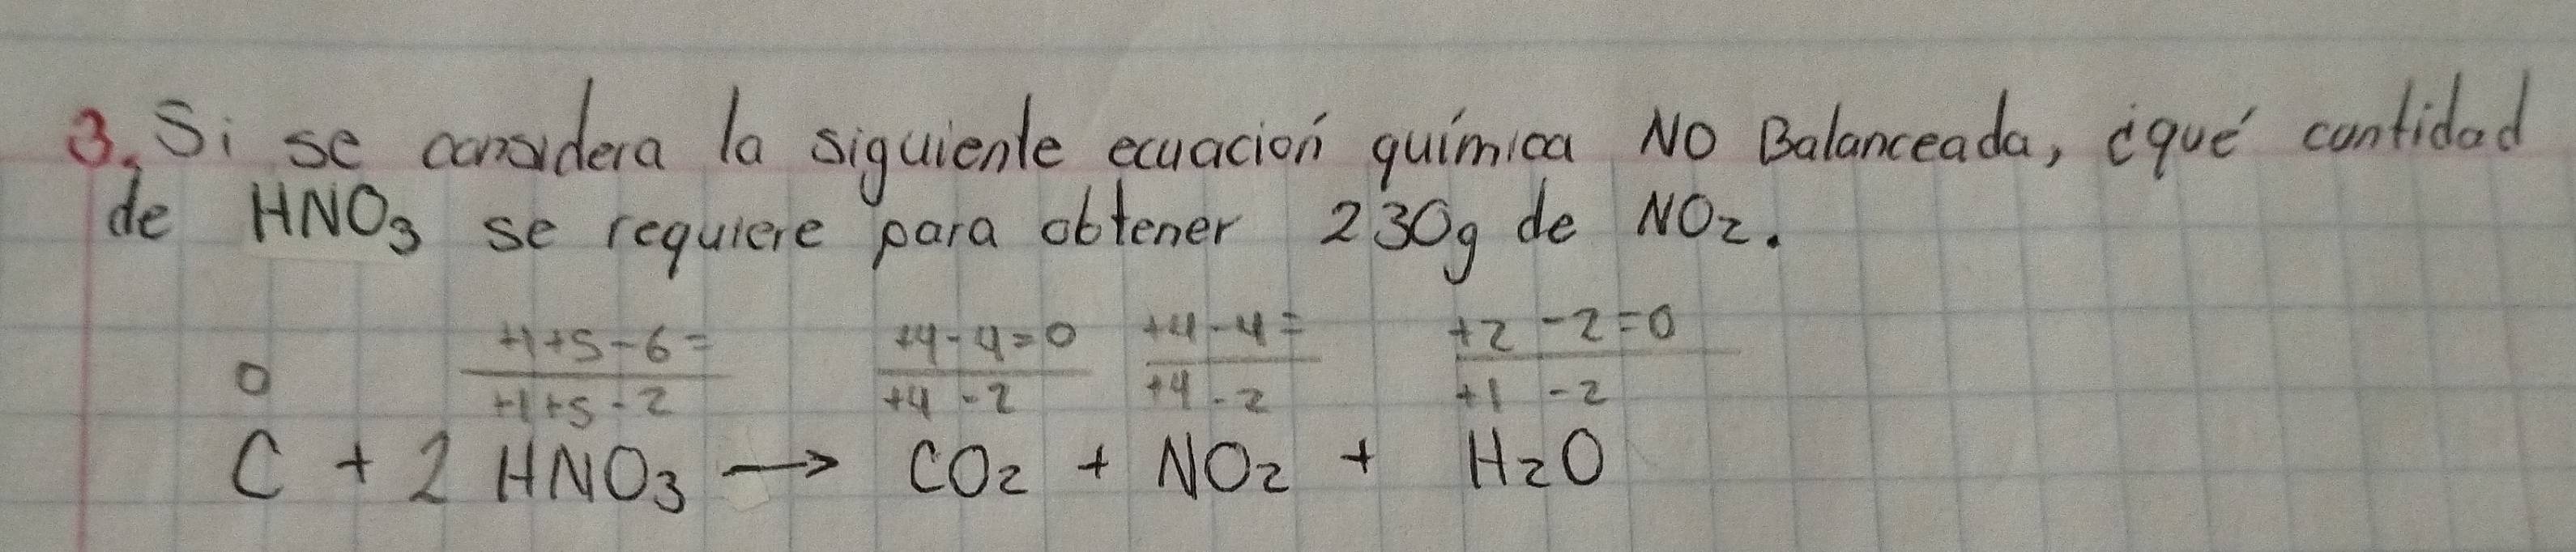 3. Si se considera la siguiente ecuación química NO Balanceada, ¿qué cantidad
de HNO₃ se requiere para obtener 230g de NO₂.
+1+5-6= +4-4=0 +4-4= +2-2=0
0 +1+5-2 +4-2 +4-2 +1-2
C + 2 HNO₃ → CO₂ + NO₂ + H₂O